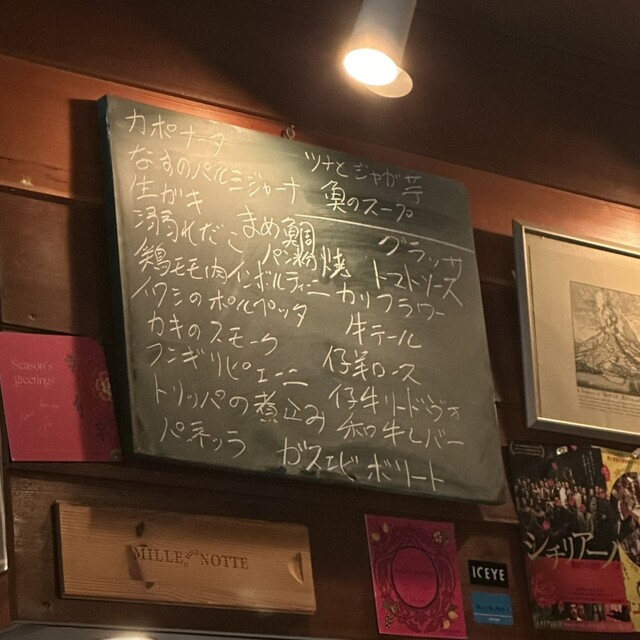 カポナータ
なすのパルミジャーナ
生がき
溺れだこ
まめ鯛パン粉焼
鶏モモ肉インボルティーニ
イワシのポルペッタ
カキのスモーク
フンギリピエーニ
トリッパの煮込み
パネッラ
ガスエビボリート
ツナとジャガ芋
魚のスープ
グラッサ
トマトソース
カリフラワー
牛テール
仔羊ロース
仔牛リードヴォ
和牛レバー
Season's
greetings
MILLE una NOTTE
ICEYE
シチリアーノ